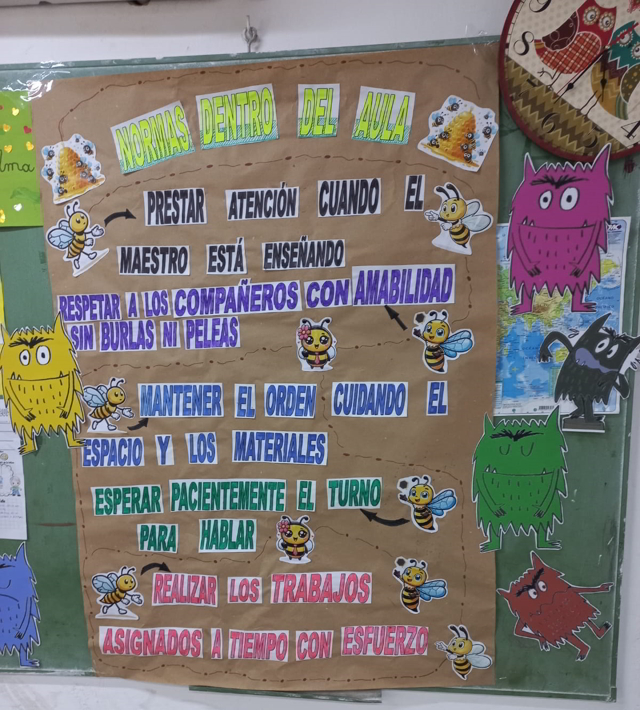 NORMAS DENTRO DEL AULA
PRESTAR ATENCIÓN CUANDO EL
MAESTRO ESTÁ ENSEÑANDO
RESPETAR A LOS COMPAÑEROS CON AMABILIDAD
SIN BURLAS NI PELEAS
MANTENER EL ORDEN CUIDANDO EL
ESPACIO Y LOS MATERIALES
ESPERAR PACIENTEMENTE EL TURNO
PARA HABLAR
REALIZAR LOS TRABAJOS
ASIGNADOS A TIEMPO CON ESFUERZO